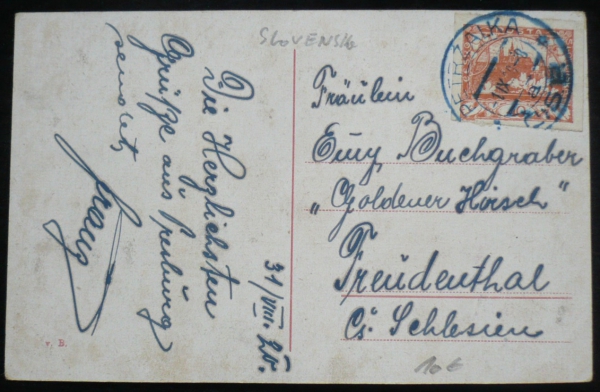 SLOVENSKO
Die Herzlichsten
Grüße aus Presburg
sendet
Franz
31/VIII. 20.
v. B.
PETRŽALKA
Fräulein
Emy Buchgraber
„Goldener Hirsch"
Freudenthal
Čs. Schlesien
10€